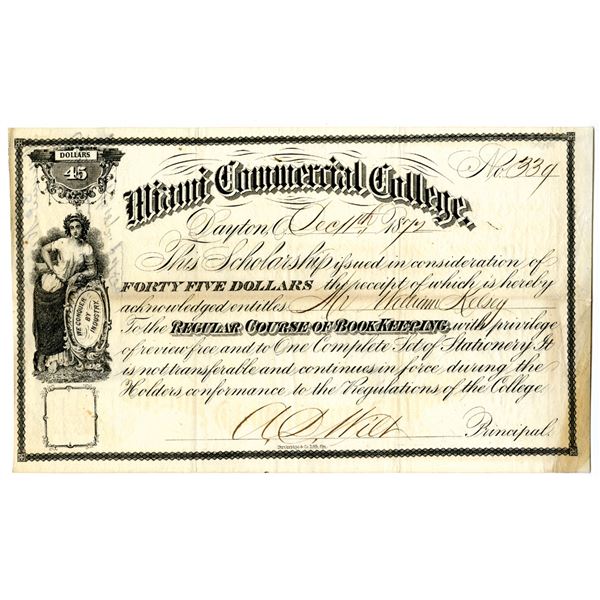 DOLLARS
45
Miami Commercial College.
No. 339
Dayton, O. Dec 11th 1872
This Scholarship issued in consideration of
FORTY FIVE DOLLARS the receipt of which is hereby
acknowledged entitles Mr William Kelsey
To the REGULAR COURSE OF BOOK KEEPING, with privilege
of review free and to One Complete Set of Stationery. It
is not transferable and continues in force during the
Holders conformance to the Regulations of the College.
WE CONQUER
BY
INDUSTRY
A D Wilt Principal.